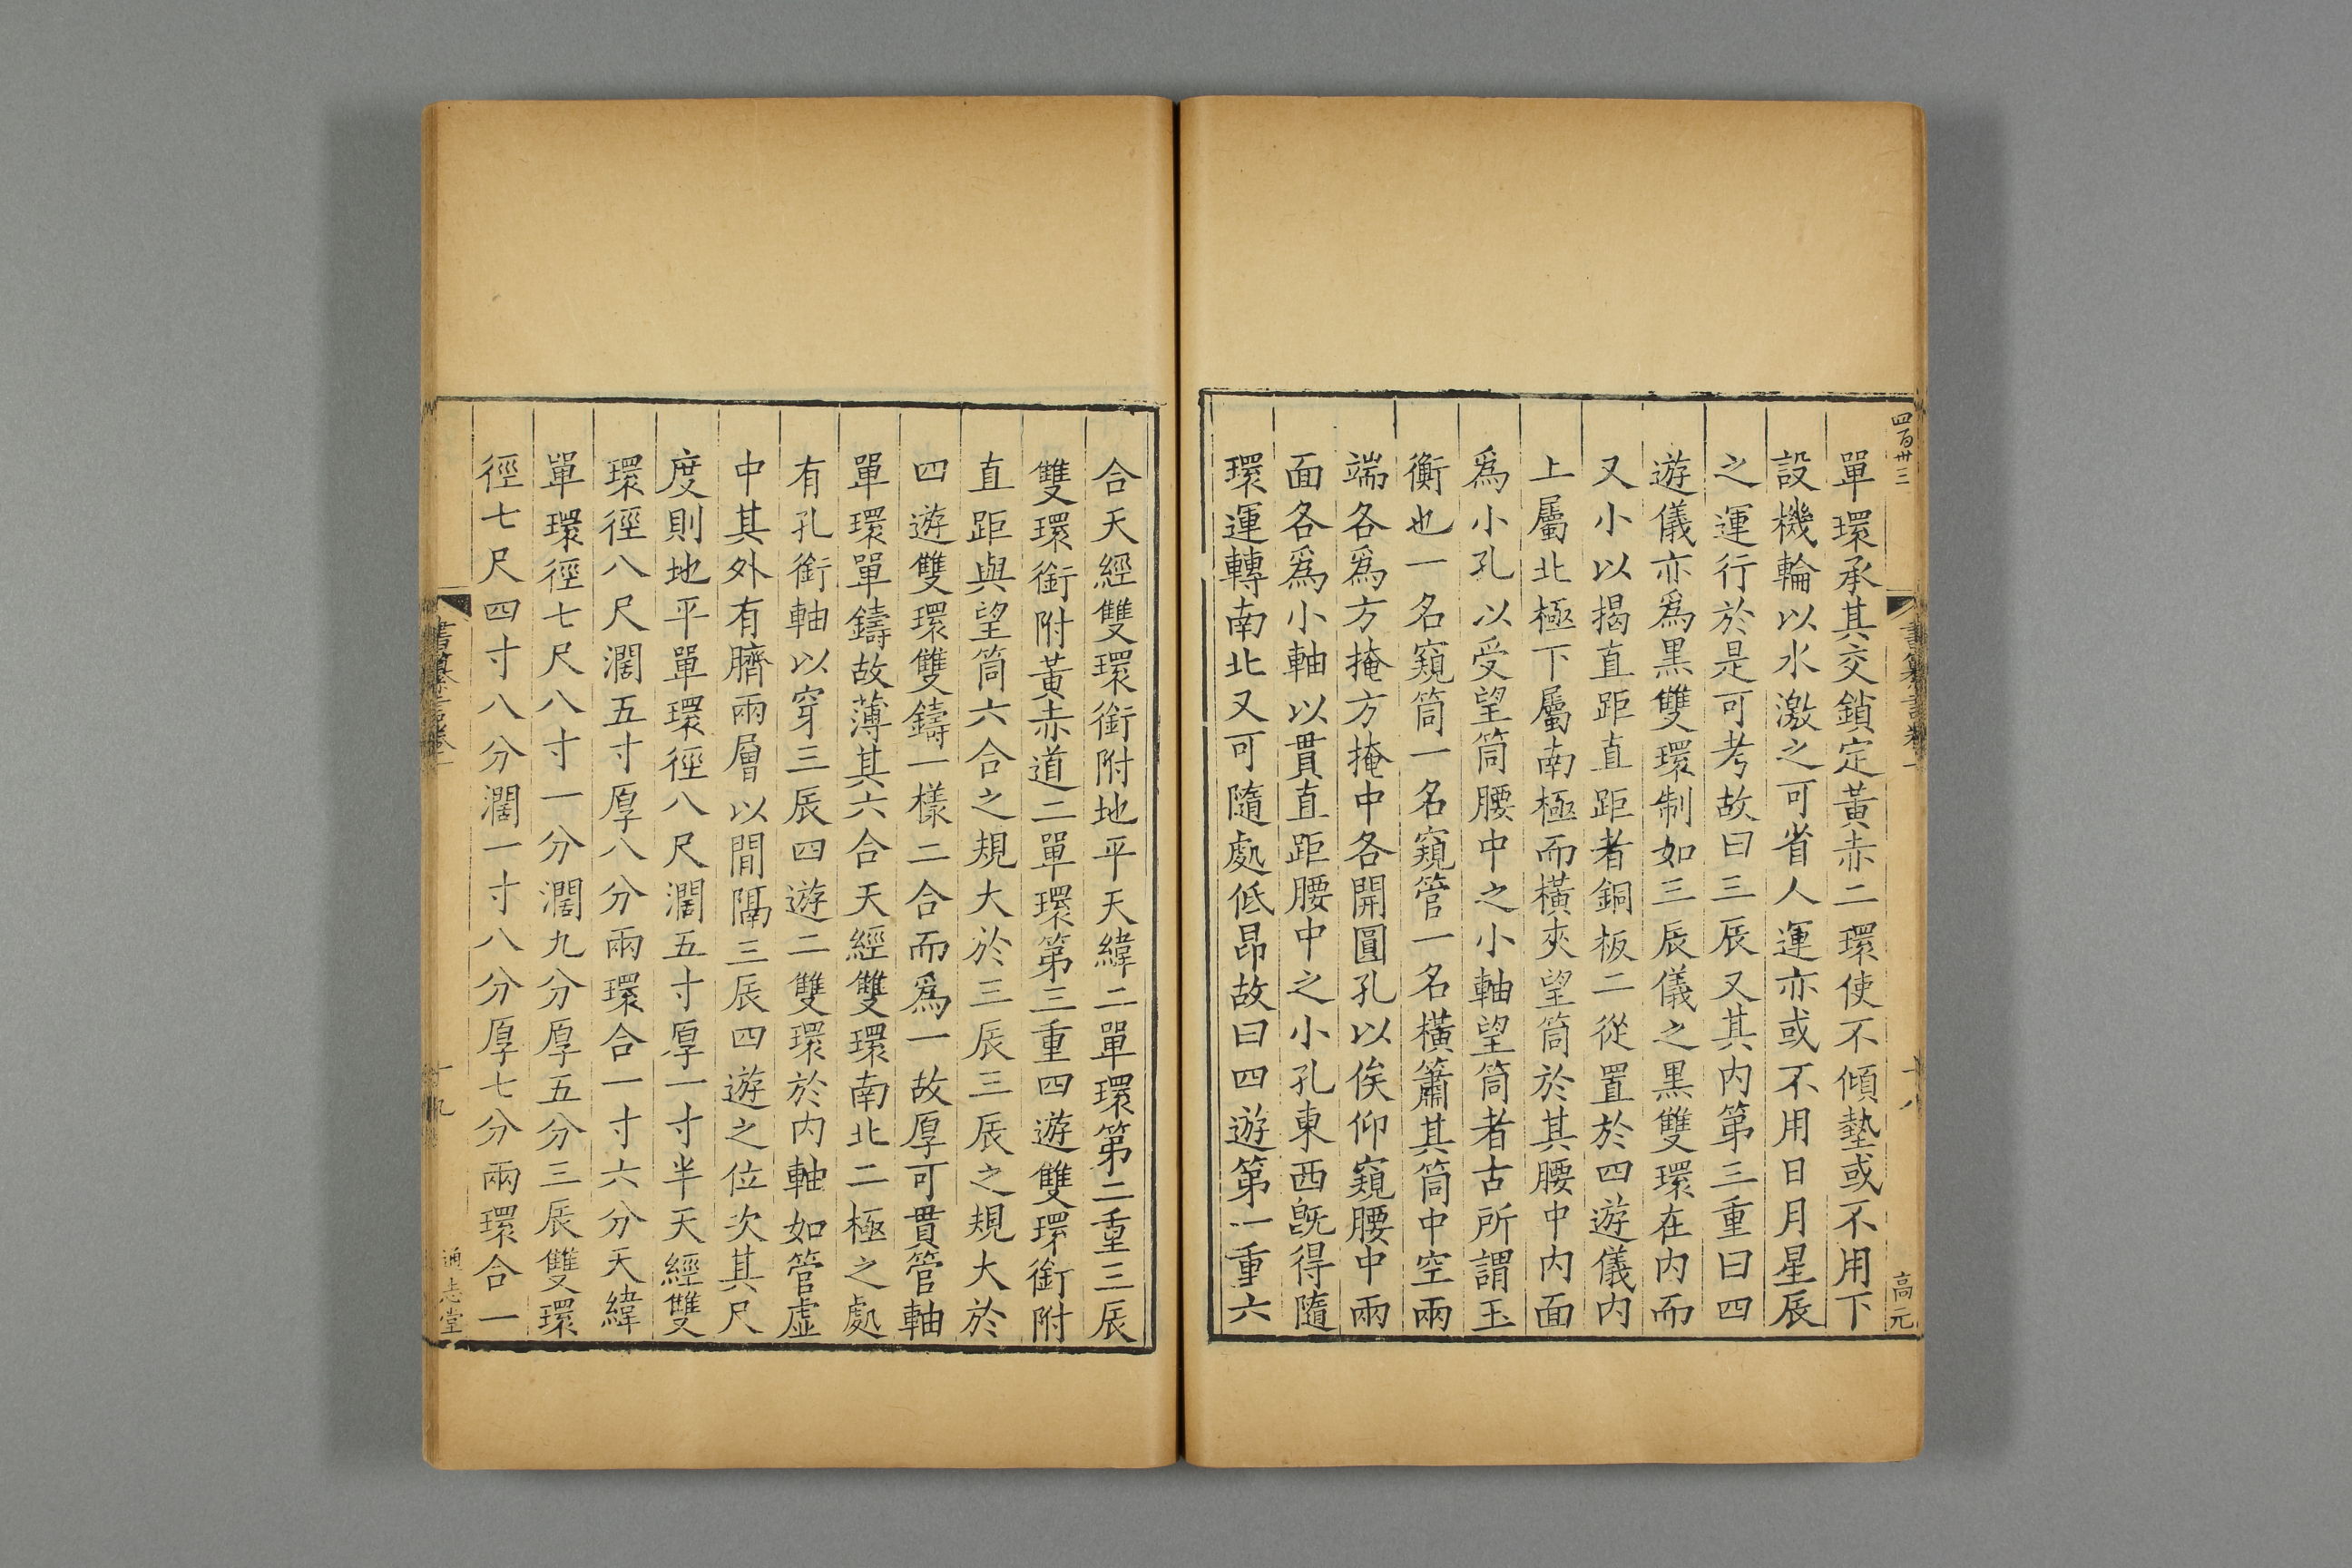 四百卅三
單環承其交鎖定黃赤二環使不傾墊或不用下
設機輪以水激之可省人運亦或不用日月星辰
之運行於是可考故曰三辰又其内第三重曰四
遊儀亦爲黑雙環制如三辰儀之黑雙環在内而
又小以揭直距直距者銅板二從置於四遊儀内
上屬北極下屬南極而橫夾望筒於其腰中内面
爲小孔以受望筒腰中之小軸望筒者古所謂玉
衡也一名窺筒一名窺管一名橫簫其筒中空兩
端各爲方掩方掩中各開圓孔以俟仰窺腰中兩
面各爲小軸以貫直距腰中之小孔東西旣得隨
環運轉南北又可隨處低昂故曰四遊第一重六
十八
高元
合天經雙環銜附地平天緯二單環第二重三辰
雙環銜附黃赤道二單環第三重四遊雙環銜附
直距與望筒六合之規大於三辰三辰之規大於
四遊雙環雙鑄一樣二合而爲一故厚可貫管軸
單環單鑄故薄其六合天經雙環南北二極之處
有孔銜軸以穿三辰四遊二雙環於内軸如管虛
中其外有臍兩層以間隔三辰四遊之位次其尺
度則地平單環徑八尺濶五寸厚一寸半天經雙
環徑八尺濶五寸厚八分兩環合一寸六分天緯
單環徑七尺八寸一分濶九分厚五分三辰雙環
徑七尺四寸八分濶一寸八分厚七分兩環合一
十九
通志堂